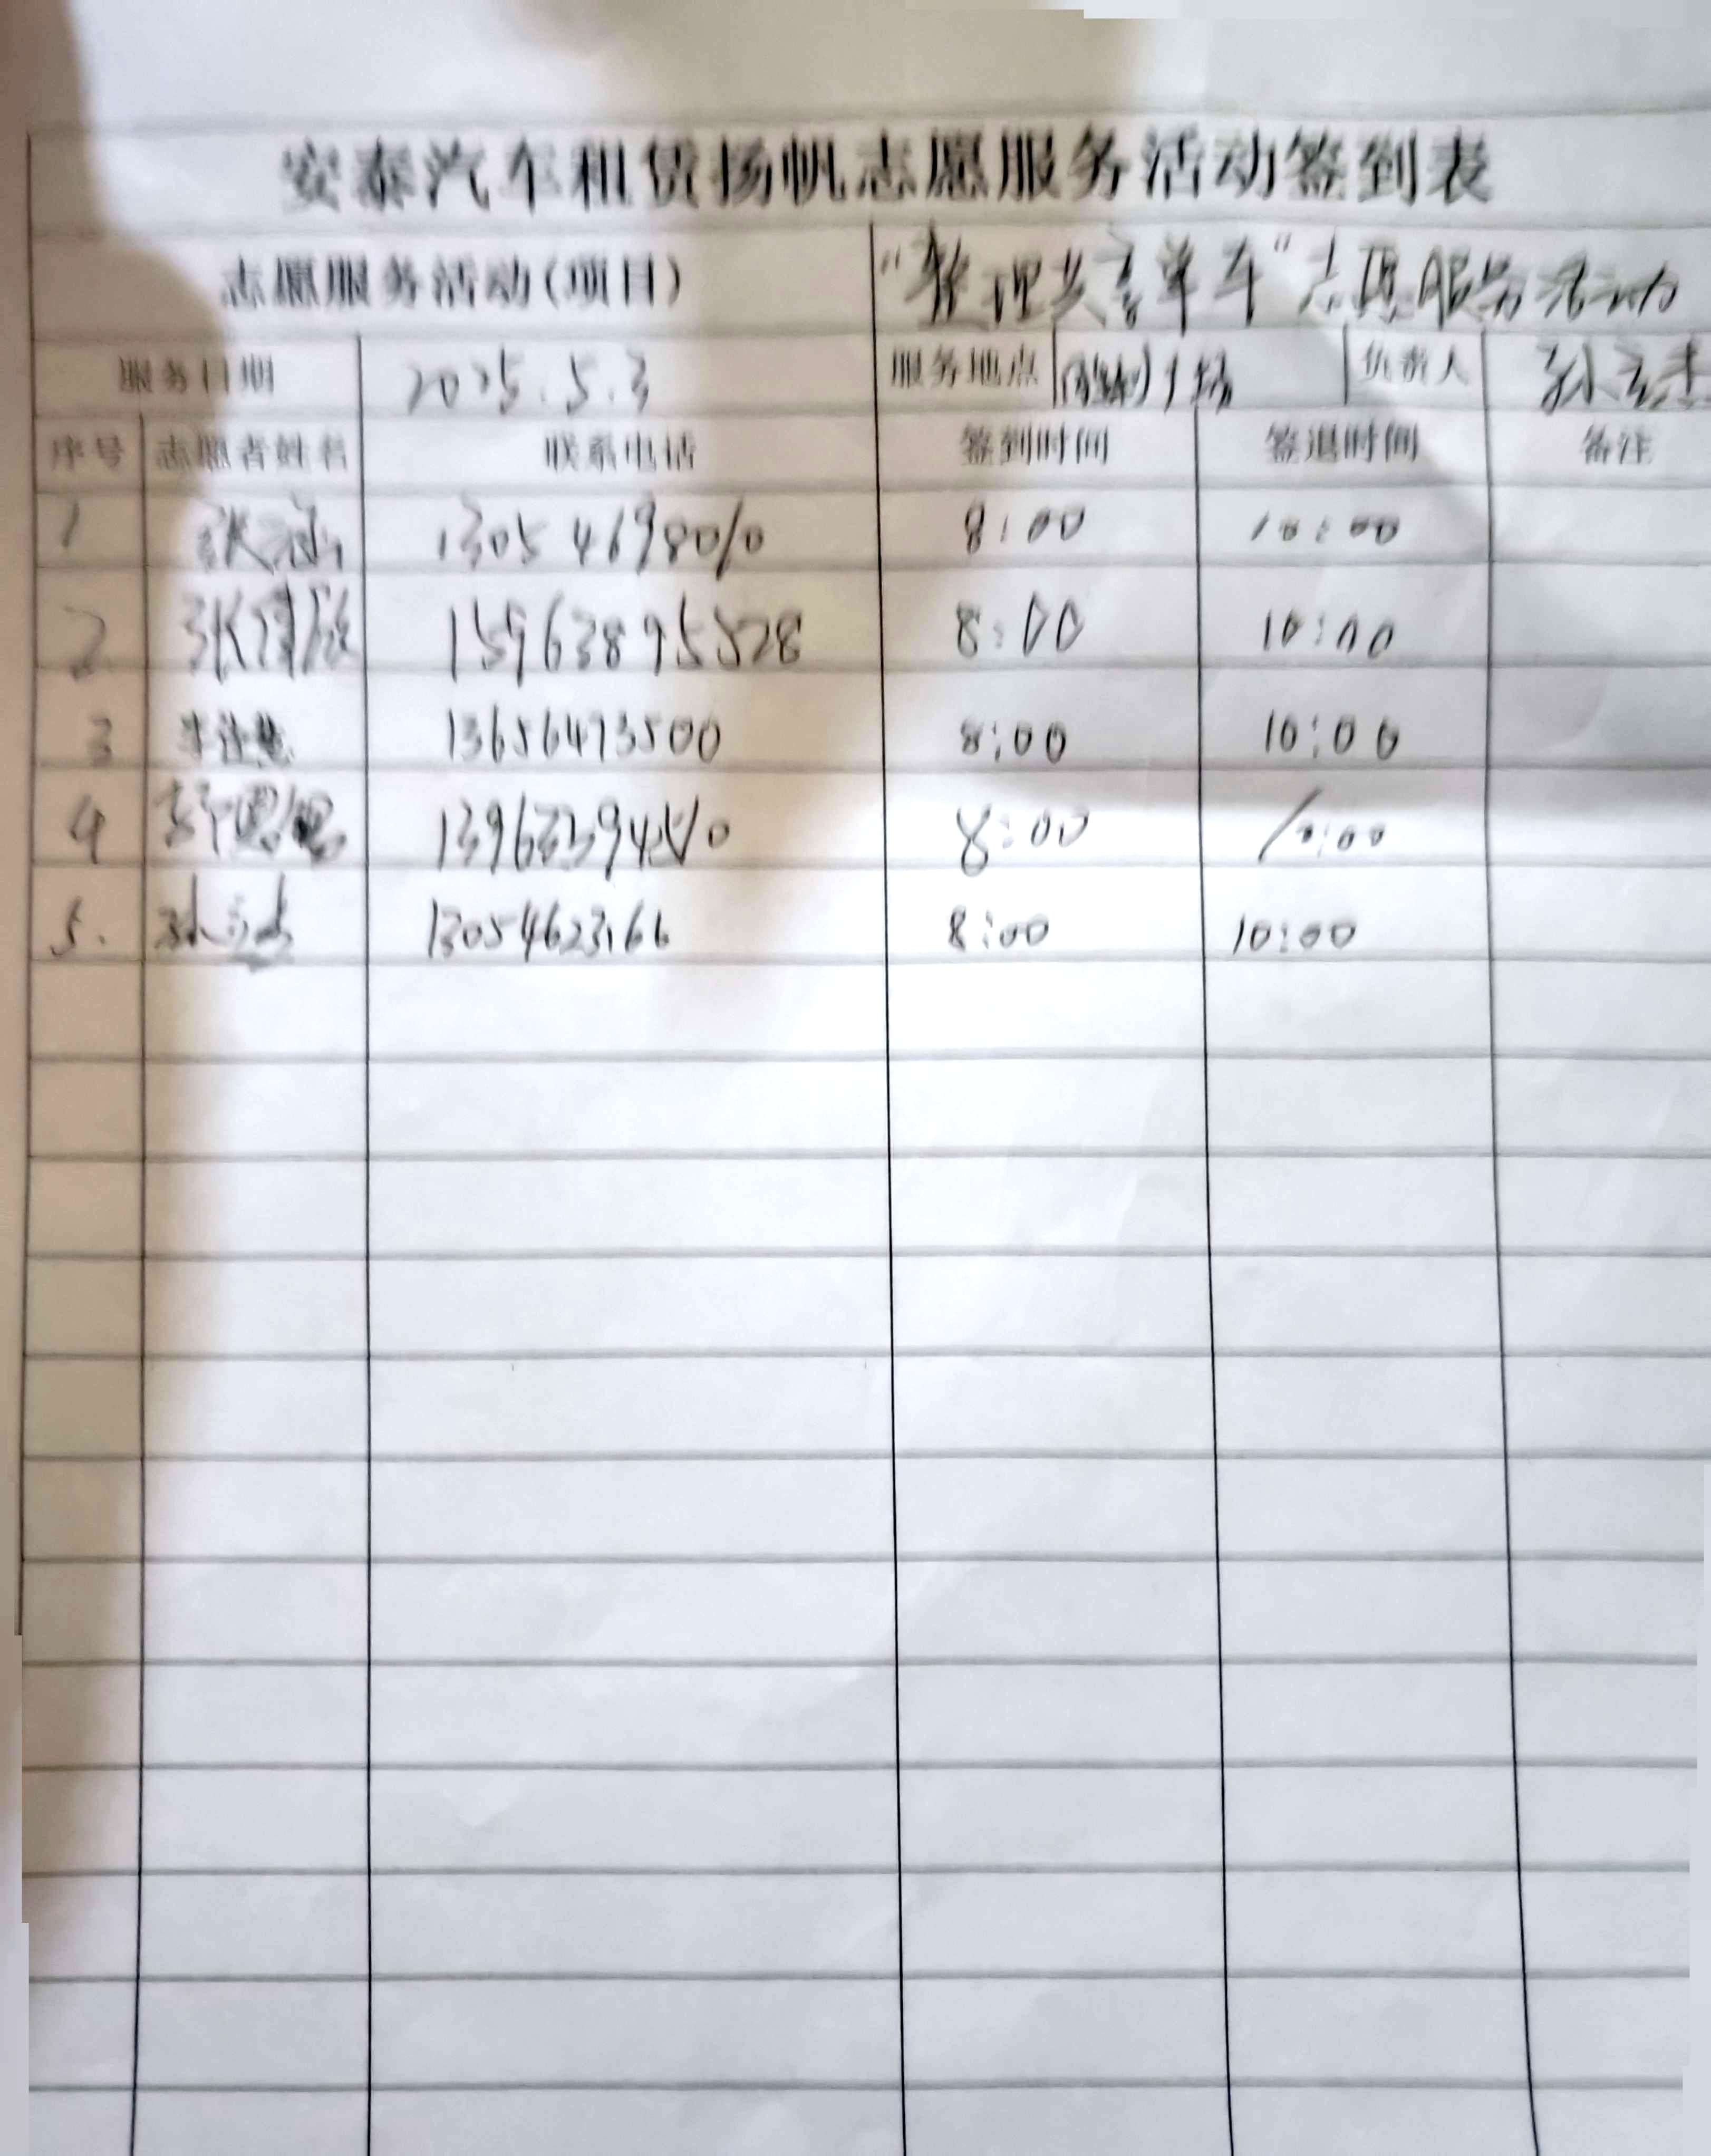 安泰汽车租赁扬帆志愿服务活动签到表
志愿服务活动(项目) "整理共享单车"志愿服务活动
服务日期 2025.5.3 服务地点 广场 负责人 孙
序号 志愿者姓名 联系电话 签到时间 签退时间 备注
1 张涵 13054698010 8:00 10:00
2 张 15963895528 8:00 10:00
3 13656473500 8:00 10:00
4 8:00 10:00
5. 孙 13054623166 8:00 10:00